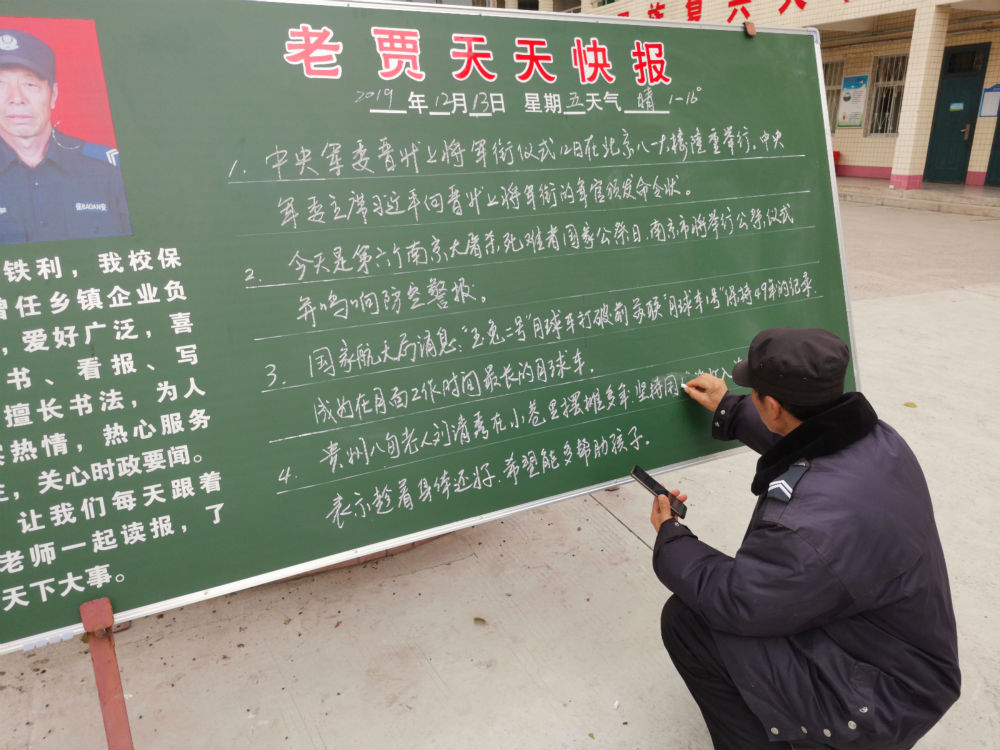 老贾天天快报
2019年12月13日 星期五天气晴1-16°
1. 中央军委晋升上将军衔仪式12日在北京八一大楼隆重举行。中央
军委主席习近平向晋升上将军衔的军官颁发命令状。
2. 今天是第六个南京大屠杀死难者国家公祭日,南京市将举行公祭仪式
并鸣响防空警报。
3. 国家航天局消息:"玉兔二号"月球车打破前苏联"月球车1号"保持49年的记录
成为在月面工作时间最长的月球车。
4. 贵州八旬老人刘清秀在小巷里摆摊多年,坚持用
表示趁着身体还好,希望能多帮助孩子。
保BAOAN安
铁利,我校保
曾任乡镇企业负
,爱好广泛,喜
书、看报、写
擅长书法,为人
热情,热心服务
,关心时政要闻。
让我们每天跟着
老师一起读报,了
天下大事。